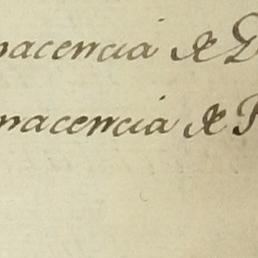 nacencia de D
nacencia de P